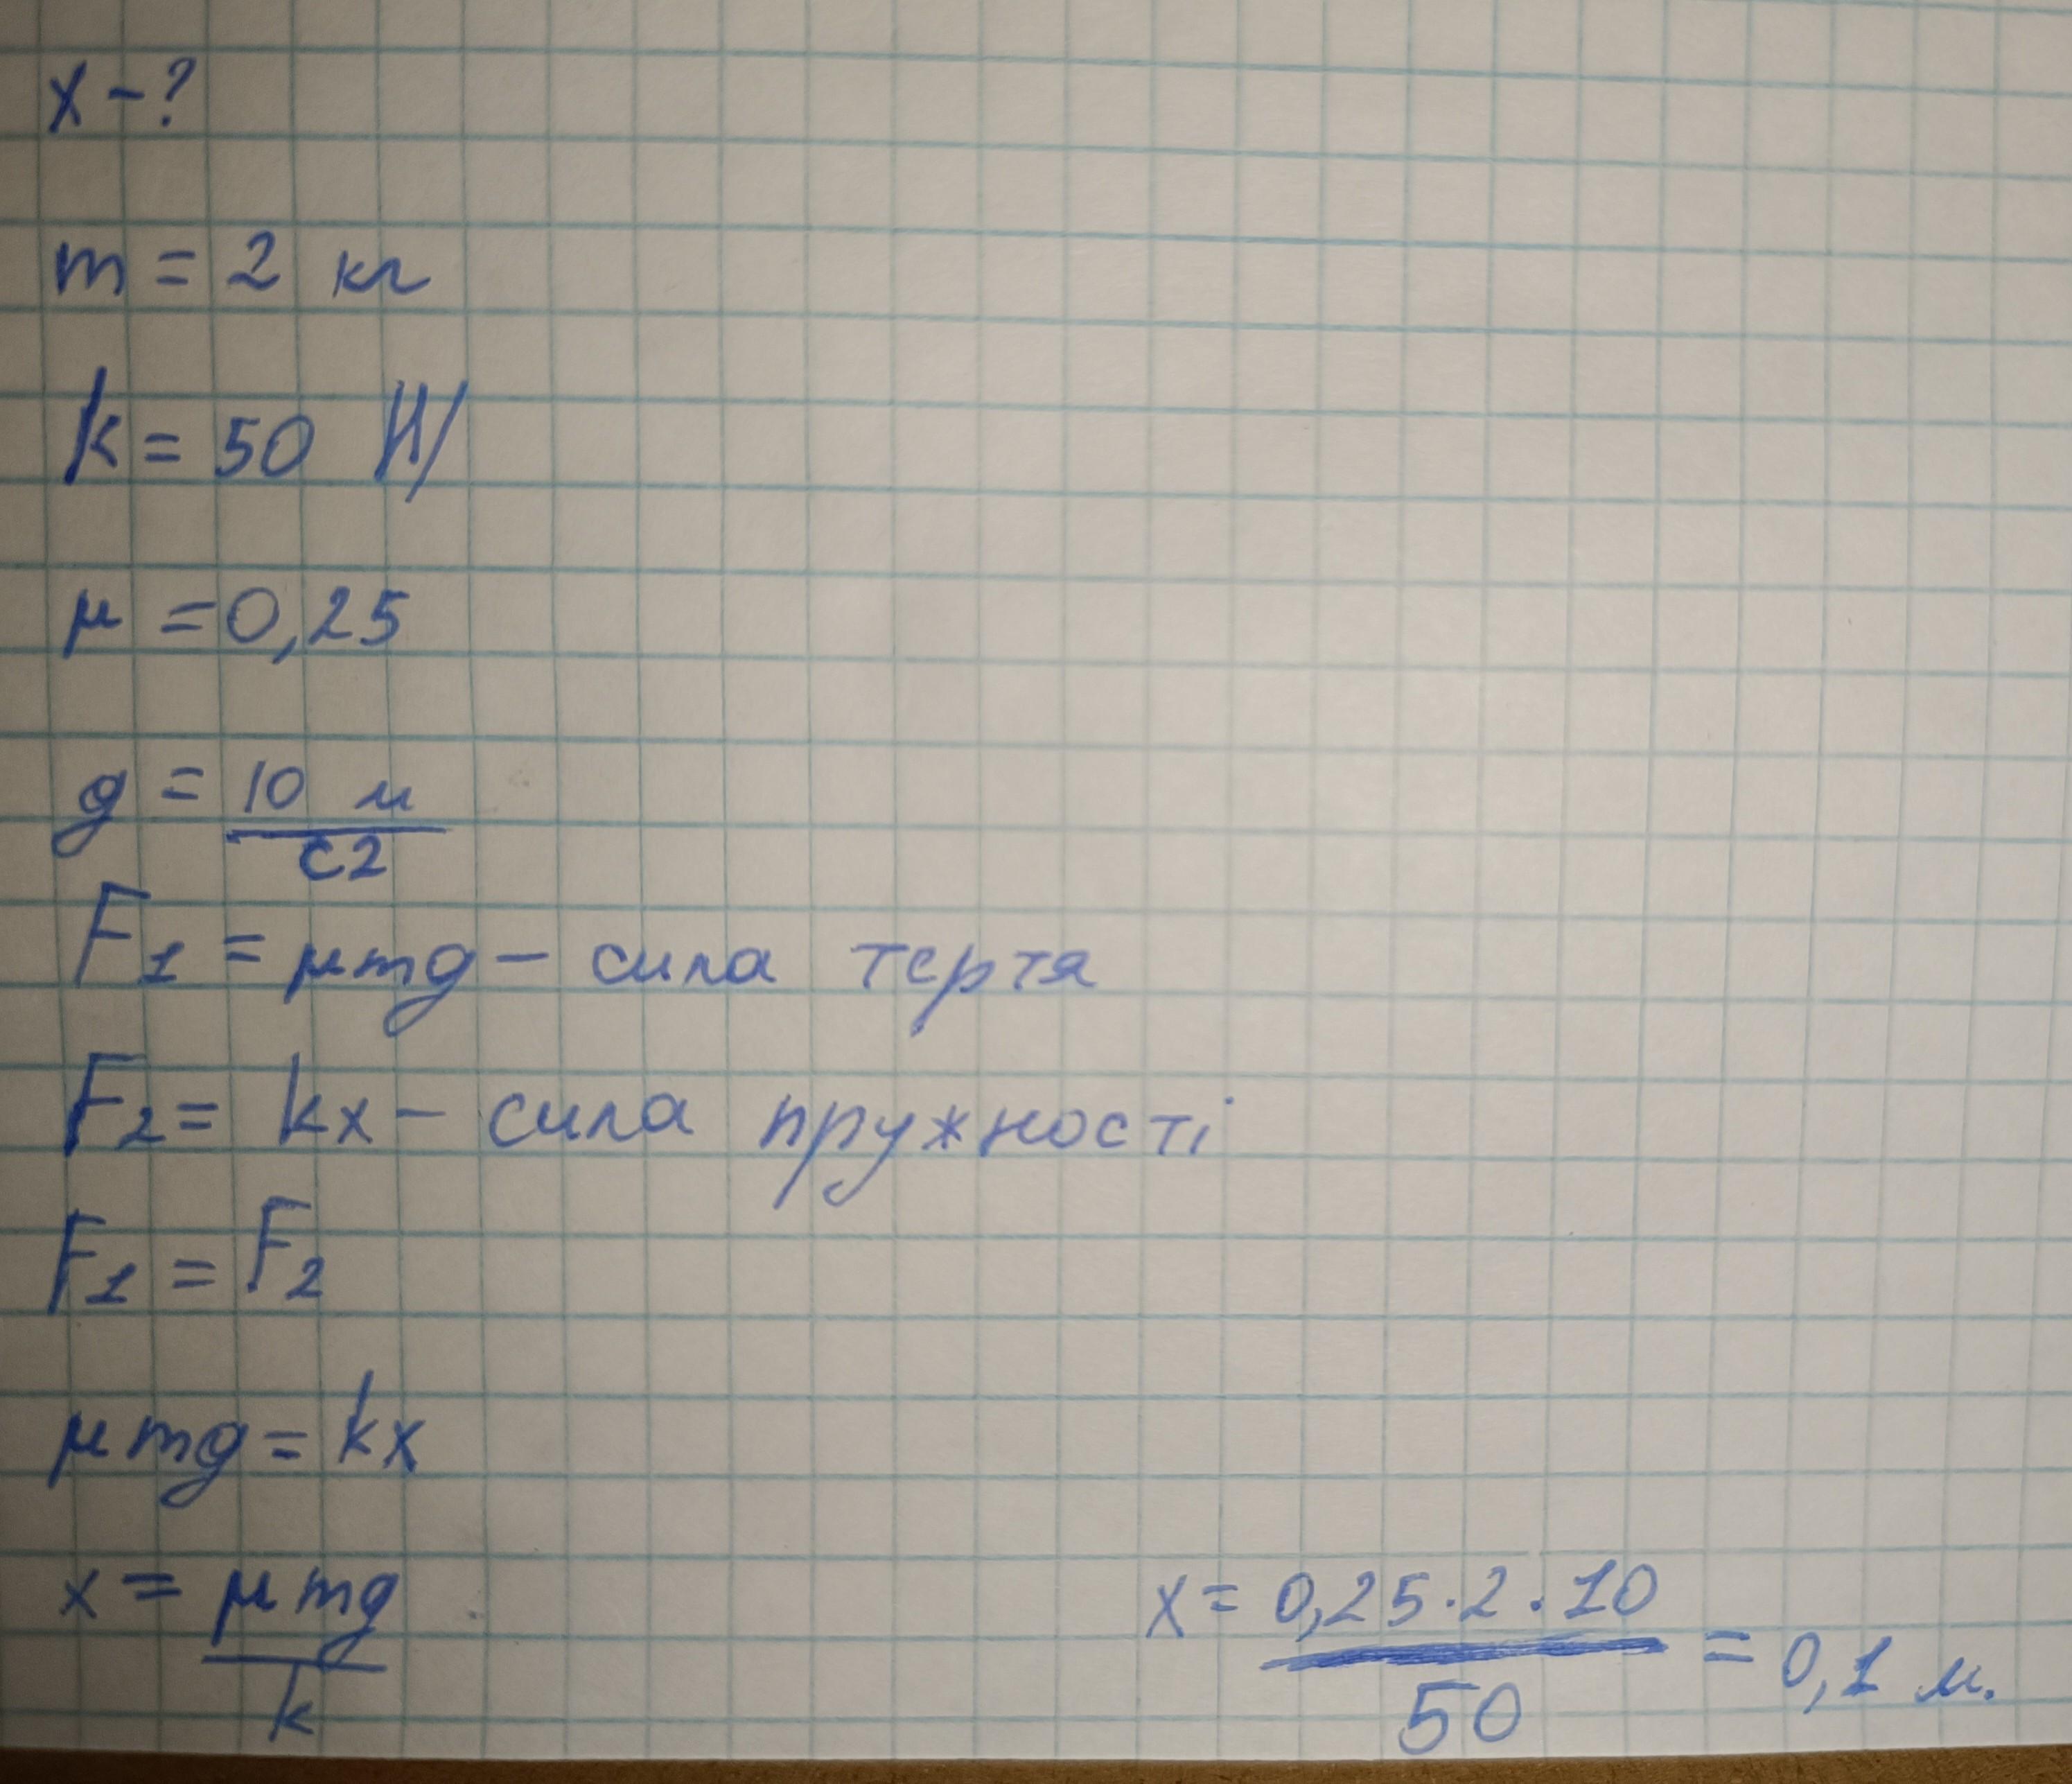 x - ?
m = 2 кг
k = 50 Н/
μ = 0,25
g = 10 м
с2
F1 = μmg - сила тертя
F2 = kx - сила пружності
F1 = F2
μmg = kx
x = μmg
k
x = 0,25 · 2 · 10
50
= 0,1 м.